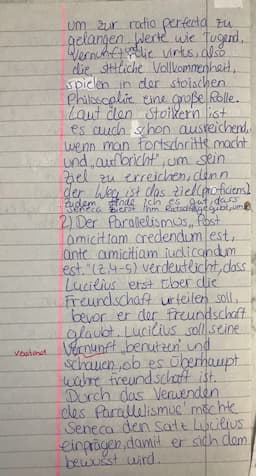 um zur ratio perfecta zu
gelangen. Werte wie Tugend,
Vernunft und die virtus, also
die sittliche Vollkommenheit,
spielen in der stoischen
Philosophie eine große Rolle.
Laut den Stoikern ist
es auch schon ausreichend,
wenn man Fortschritte macht
und „aufbricht", um sein
Ziel zu erreichen, denn
der Weg ist das Ziel (proficiens)
Zudem finde ich es gut, dass
Seneca zuerst ihm Ratschläge gibt, um
2) Der Parallelismus „Post
amicitiam credendum est,
ante amicitiam iudicandum
est." (Z.4-5) verdeutlicht, dass
Lucilius erst über die
Freundschaft urteilen soll,
bevor er der Freundschaft
glaubt. Lucilius soll seine
Verstand Vernunft „benutzen" und
schauen, ob es überhaupt
wahre Freundschaft ist.
Durch das Verwenden
des Parallelismus' möchte
Seneca den Satz Lucilius
einprägen, damit er sich dem
bewusst wird.